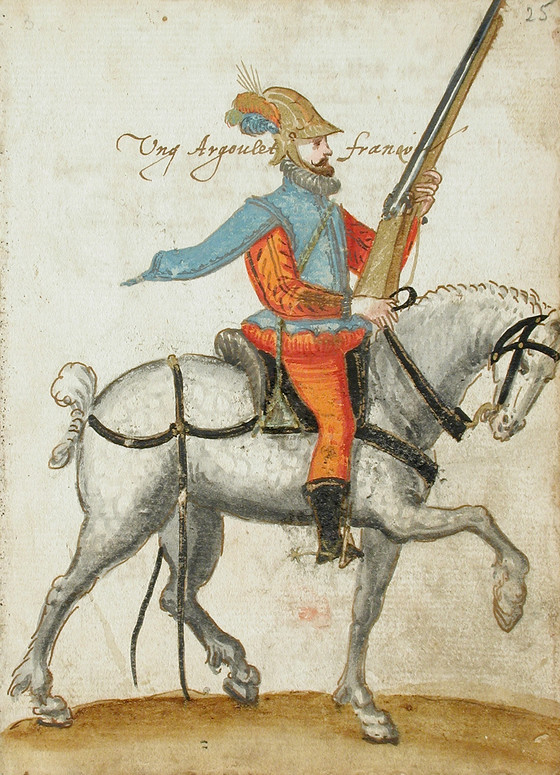 25
Ung Argoulet françois